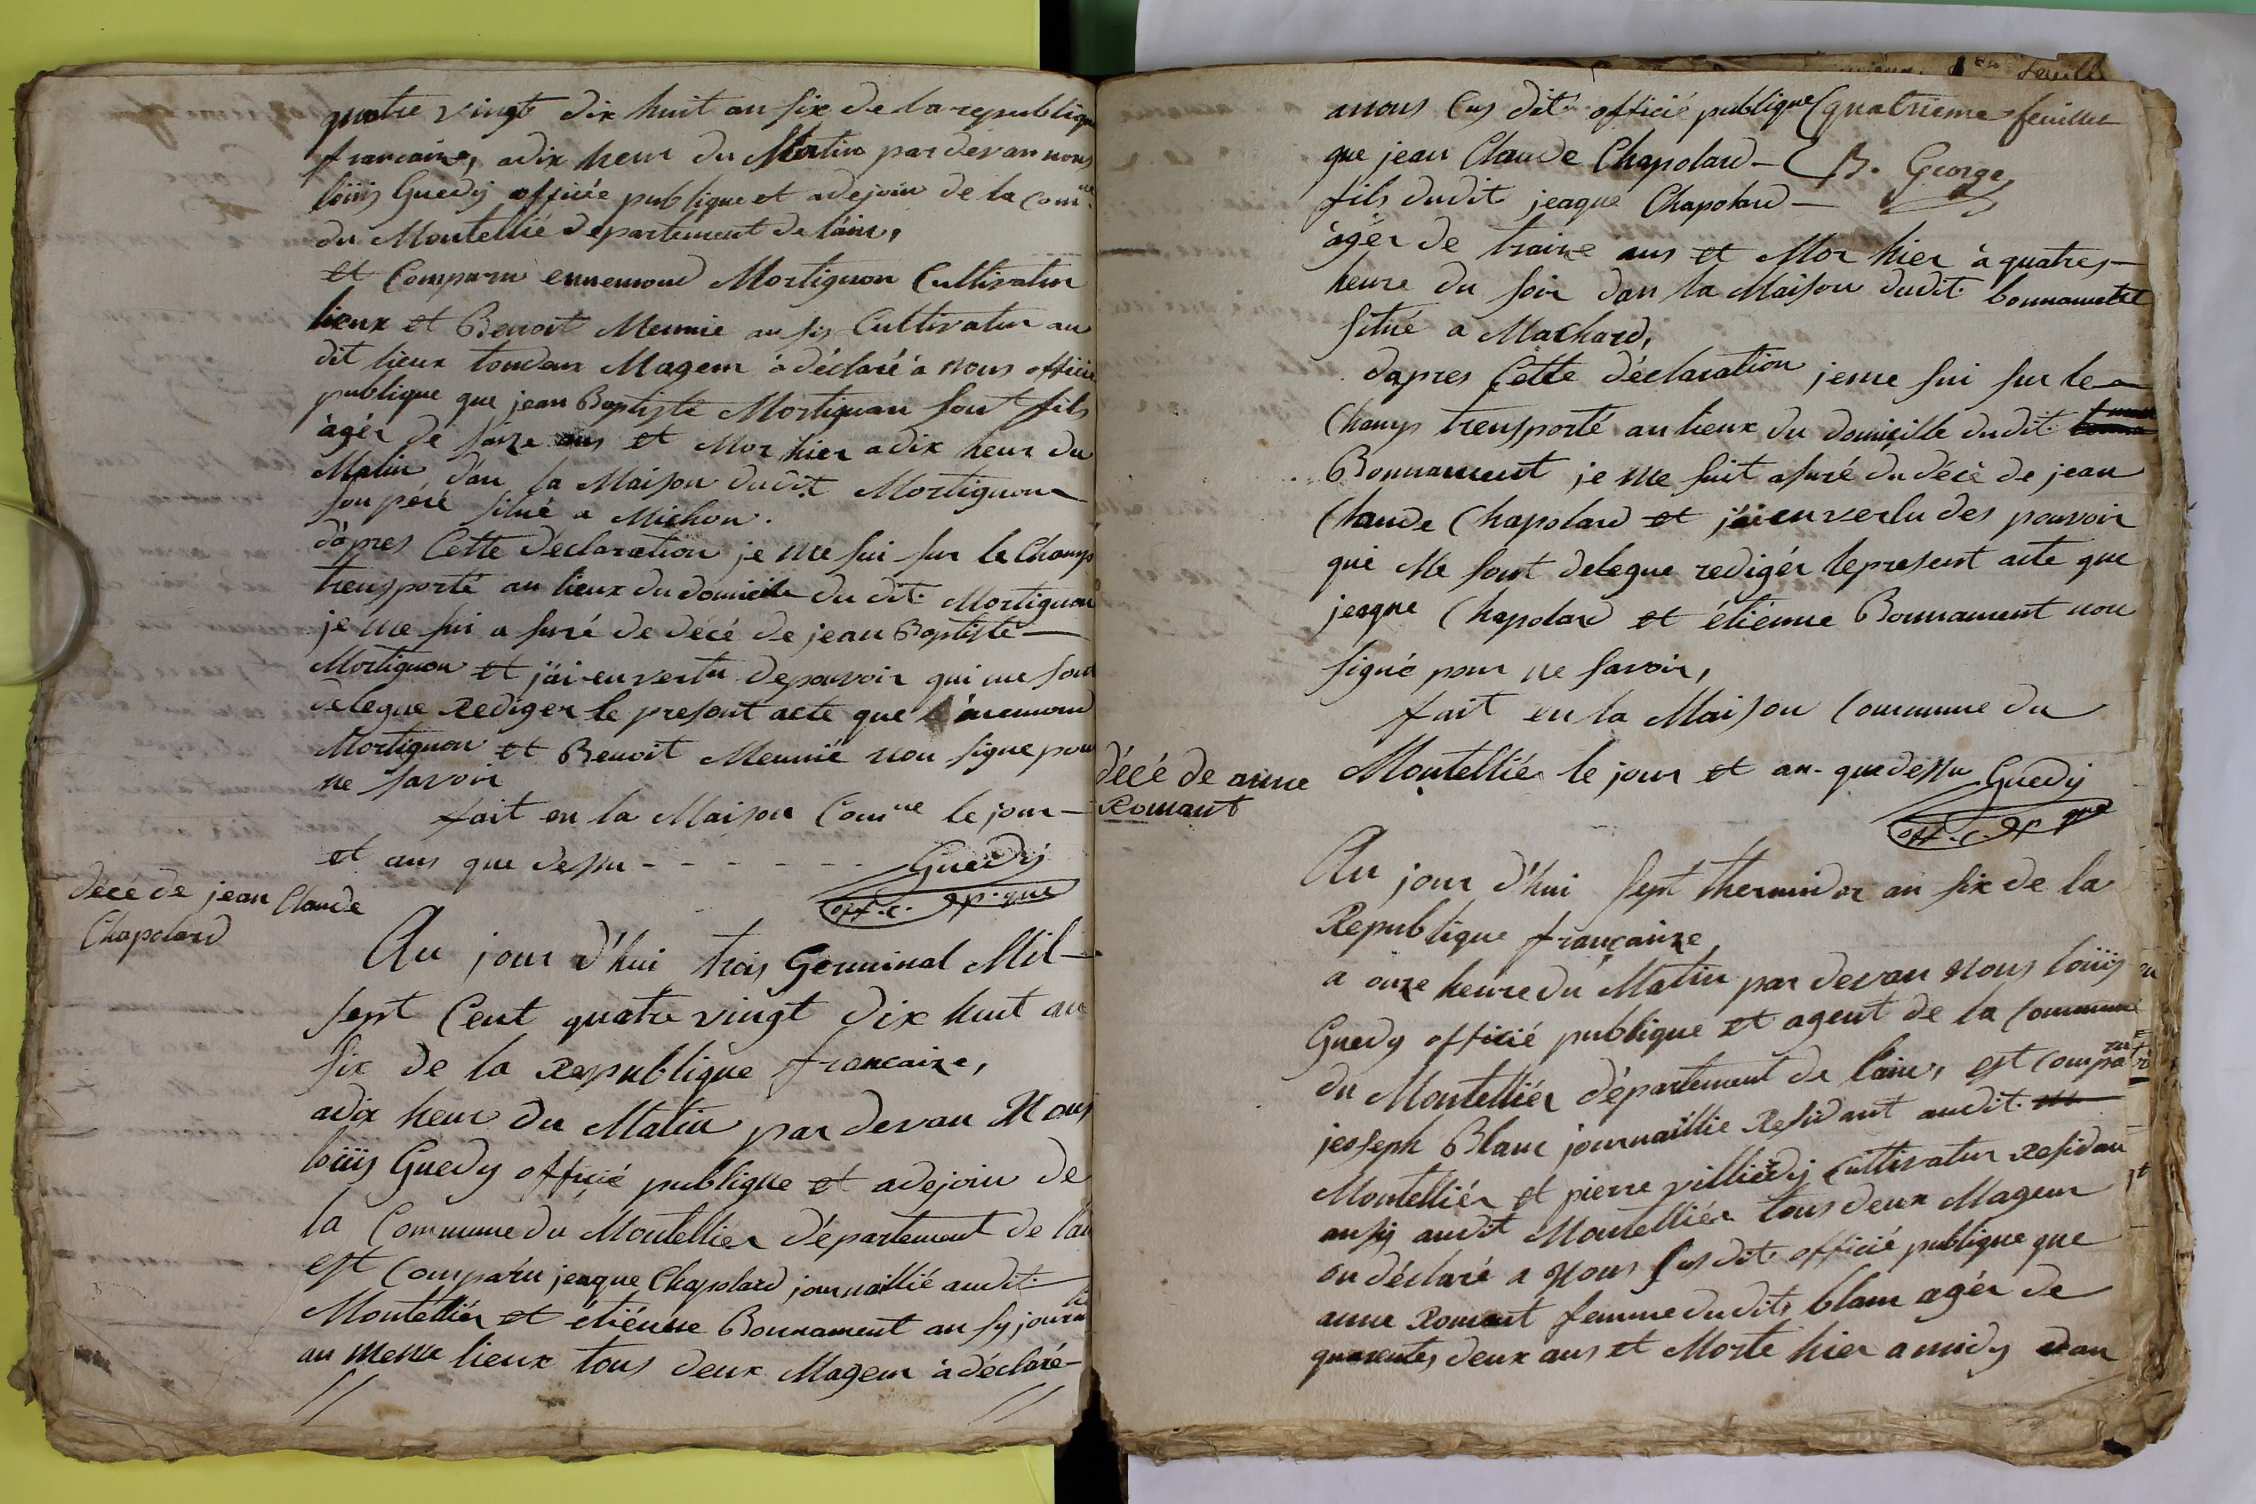 quatre vingt dix huit an six de la republique
francaire, adix heur du Matin par devan nous
loüis Guedy officié publique et adejoin de la Comne
du Montellié departement de l'ain,
et Comparu ennemond Mortignon Cultivatur
lieux et Benoit Meunie ausij Cultivatur au
dit lieux toudeux Mageur à déclaré à nous officié
publique que jean Baptiste Mortignon sont fils
àgér de saize ans et Mor hier adix heur du
Matin d'an la Maison dudit Mortignon
son péré situé a Michon.
d'apres Cette declaration je me sui sur le Champ
trensporté au lieux du domicile du dit Mortignon
je me sui a suré de décé de jean Baptiste —
Mortignon et j'ai en vertu de pouvoir qui me sont
delegue Rediger le present acte que énnemond
Mortignon et Benoit Meunié non signe pour
ne savoir
fait en la Maison Comne le jour —
et ans que dessu - - - - - - Guedy
off. c. p. que
décé de jean Claude
Chapolard
Au jour d'hui trois Germinal Mil —
sept Cent quatre vingt dix huit an
six de la Republique francaire,
adix heur du Matin par devan Nous
loüis Guedy officié publique et adejoin de
la Commune du Montelliér département de l'ain
est Comparu jeaque Chapolard journaillié audit
Montelliér et étiénne Bonnament au sy journa
lié
au meme lieux tous deux Mageur à déclaré —
quatrieme feuillet
B. George
anous sus dit officié publique
que jean Claude Chapolard —
fils dudit jeaque Chapolard —
àgér de traize ans et Mor hier à quatres —
heure du soir dan la Maison dudit bonnament
situé a Machard,
dapres Cette déclaration jeme sui sur le
Champ trensporté au lieux du domicille dudit
Bonnament je me suit a suré du décè de jean
Claude Chapolard et j'ai en vertu des pouvoir
qui Me sont delegue redigér lepresent acte que
jeaque Chapolard et étiénne Bonnament non
signé pour ne savoir,
fait en la Maison Commune du
Montelliér le jour et an que dessu Guedy
off. c. p. que
décé de anne
Romant
Au jour d'hui sept thermidor an six de la
Republique françaire,
a onze heure du Matin par devan Nous loüis
Guedy officié publique et agent de la Commune
du Montelliér département de lain, est compa
ru
jeoseph Blanc journaillie Residant audit
Montelliér et pierre villiédy Cultivatur Residan
ausy audit Montelliér tous deux Mageur
on déclaré a Nous sus dit officié publique que
anne Romant femme dudit blanc agér de
quarentes deux ans et Morte hier a midy dan